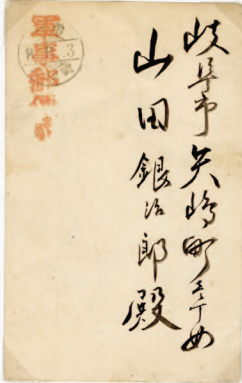 岐阜市矢嶋町三丁め
山田銀治郎殿
軍事郵便
3